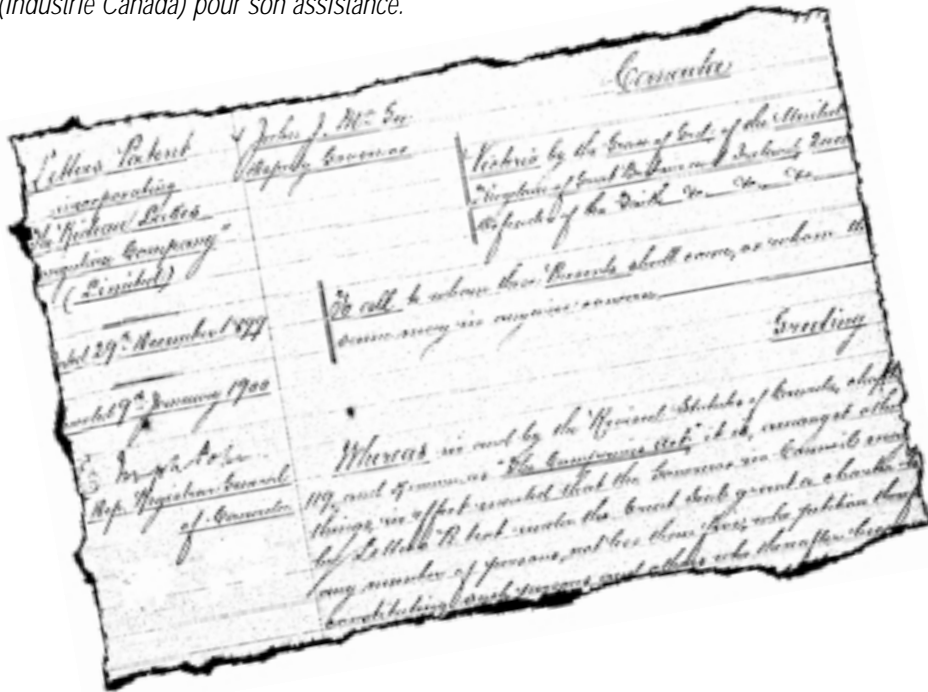 (Industrie Canada) pour son assistance.
Canada
Letters Patent
incorporating
"Rideau Lakes
Navigation Company"
(Limited)
29th December 1899
9th January 1900
Joseph Pope
Dep. Registrar General
of Canada
John J. McGee
Deputy Governor
Victoria by the Grace of God, of the United
Kingdom of Great Britain and Ireland, Queen
Defender of the Faith &c. &c. &c.
To all to whom these Presents shall come, or whom the
same may in anywise concern,
Greeting
Whereas in and by the Revised Statutes of Canada, chapter
119, and known as "The Companies Act," it is, amongst other
things, in effect enacted that the Governor in Council may
by Letters Patent under the Great Seal grant a charter to
any number of persons, not less than five, who petition therefor
constituting such persons, and others who thereafter become